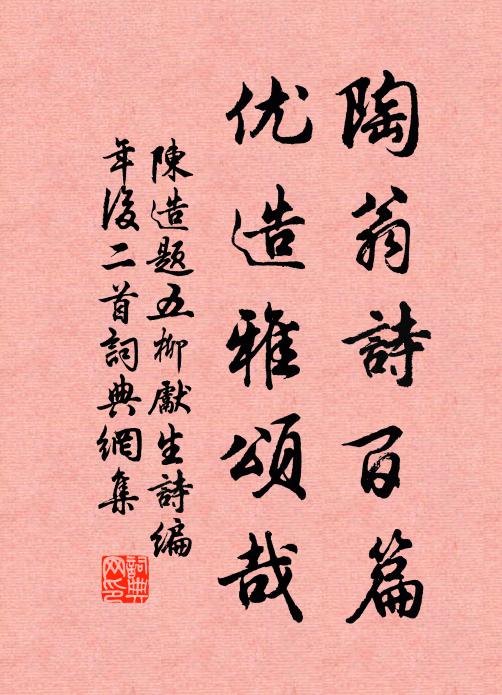 陶翁詩百篇
优造雅頌哉
陳造題五柳獻生詩编
年後二首詞典網集
詞典
网印